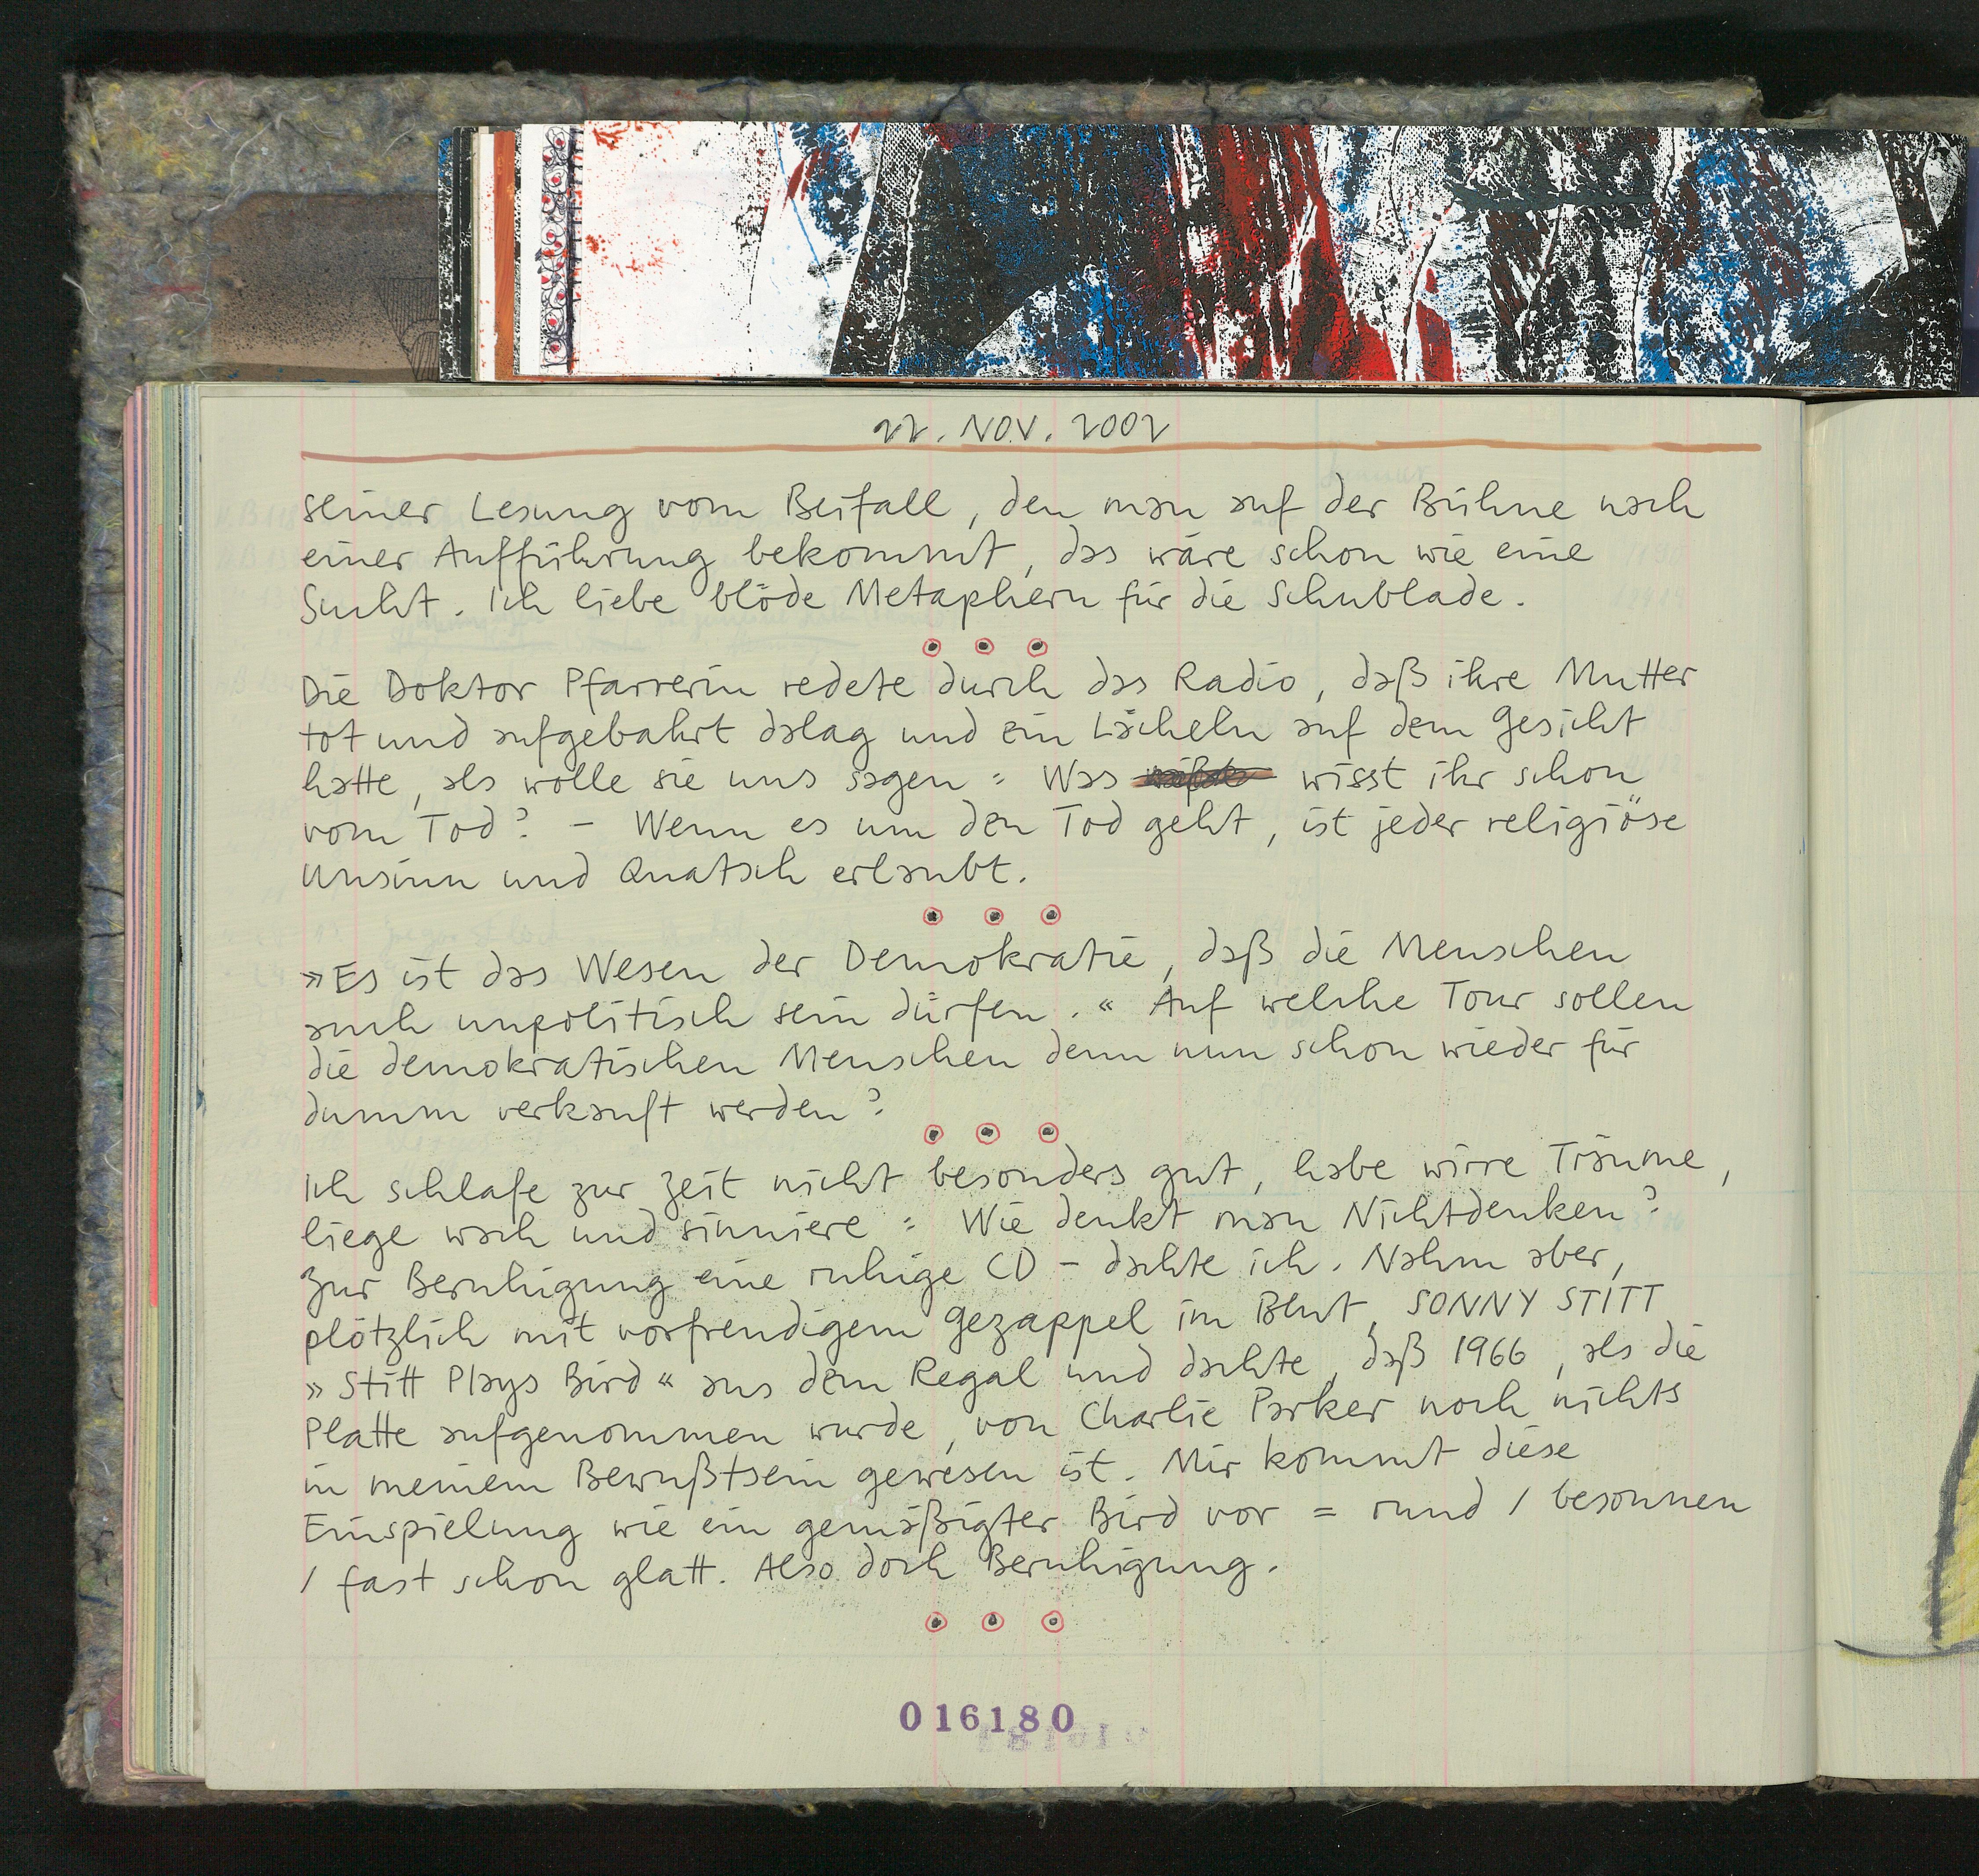 22. NOV. 2002
seiner Lesung vom Beifall, den man auf der Bühne nach
einer Aufführung bekommt, das wäre schon wie eine
Sucht. Ich liebe blöde Metaphern für die Schublade.
Die Doktor Pfarrerin redete durch das Radio, daß ihre Mutter
tot und aufgebahrt dalag und ein Lächeln auf dem Gesicht
hatte, als wolle sie uns sagen: Was wisst ihr schon
vom Tod? – Wenn es um den Tod geht, ist jeder religiöse
Unsinn und Quatsch erlaubt.
»Es ist das Wesen der Demokratie, daß die Menschen
auch unpolitisch sein dürfen.« Auf welche Tour sollen
die demokratischen Menschen denn nun schon wieder für
dumm verkauft werden?
Ich schlafe zur Zeit nicht besonders gut, habe wirre Träume,
liege wach und sinniere: Wie denkt man Nichtdenken?
Zur Beruhigung eine ruhige CD – dachte ich. Nahm aber,
plötzlich mit vorfreudigem Gezappel im Blut, SONNY STITT
»Stitt Plays Bird« aus dem Regal und dachte, daß 1966, als die
Platte aufgenommen wurde, von Charlie Parker noch nichts
in meinem Bewußtsein gewesen ist. Mir kommt diese
Einspielung wie ein gemäßigter Bird vor = rund / besonnen
/ fast schon glatt. Also doch Beruhigung.
016180